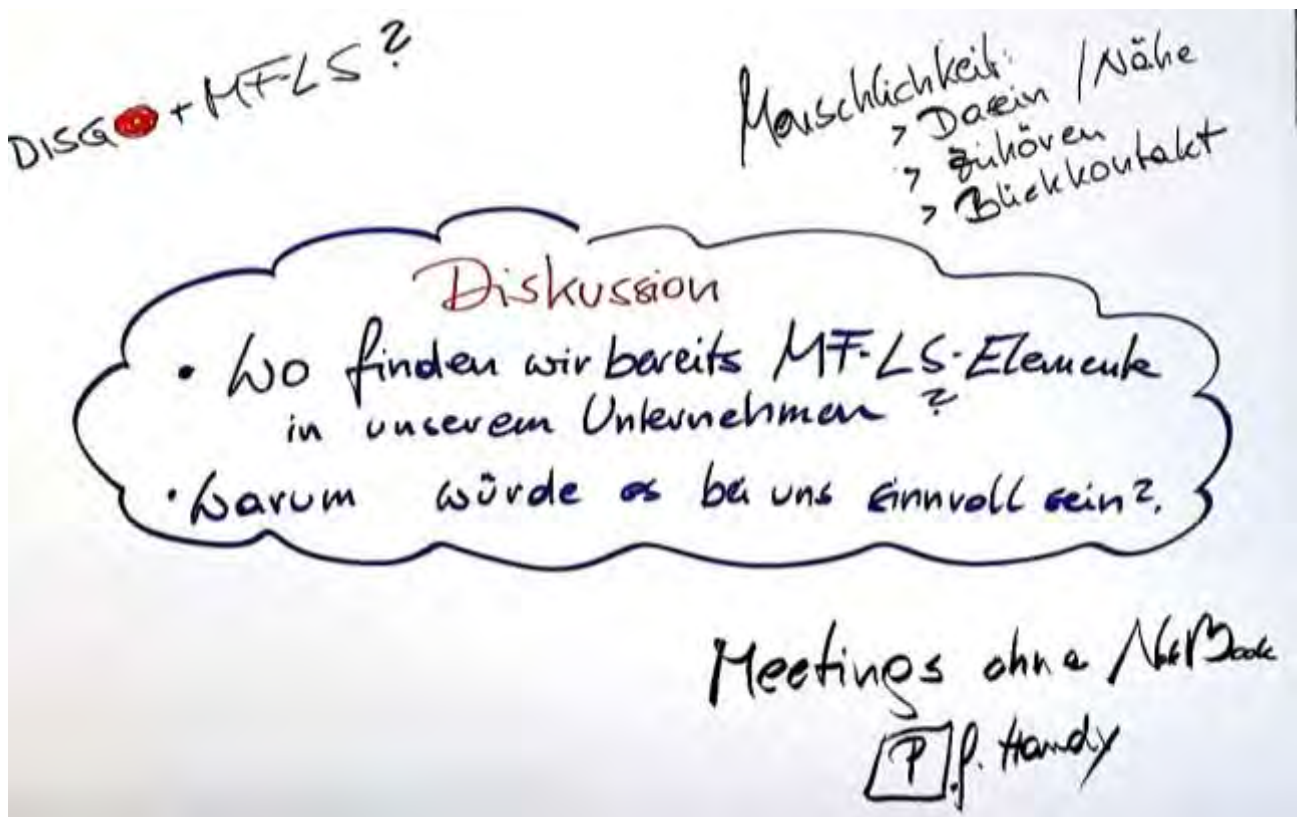 DISG + MF-LS?
Menschlichkeit:
> Dasein / Nähe
> Zuhören
> Blickkontakt
Diskussion
• Wo finden wir bereits MF-LS-Elemente
in unserem Unternehmen?
• Warum würde es bei uns sinnvoll sein?.
Meetings ohne NoteBook
P f. Handy